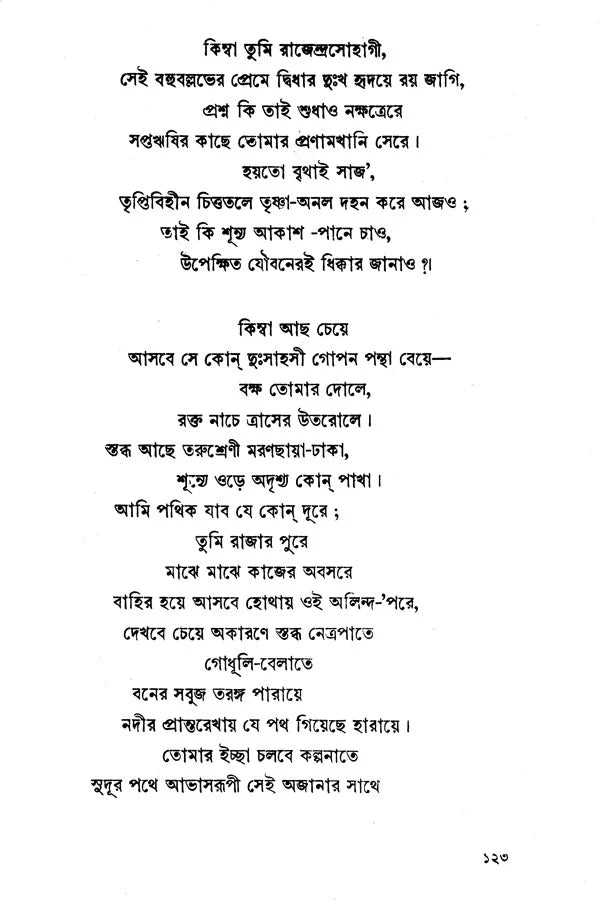 কিম্বা তুমি রাজেন্দ্রসোহাগী,
সেই বহুবল্লভের প্রেমে দ্বিধার দুঃখ হৃদয়ে রয় জাগি,
প্রশ্ন কি তাই শুধাও নক্ষত্রেরে
সপ্তঋষির কাছে তোমার প্রণামখানি সেরে।
হয়তো বৃথাই সাজ',
তৃপ্তিবিহীন চিত্ততলে তৃষ্ণা-অনল দহন করে আজও ;
তাই কি শূন্য আকাশ -পানে চাও,
উপেক্ষিত যৌবনেরই ধিক্কার জানাও ?।
কিম্বা আছ চেয়ে
আসবে সে কোন্ দুঃসাহসী গোপন পন্থা বেয়ে—
বক্ষ তোমার দোলে,
রক্ত নাচে ত্রাসের উতরোলে।
স্তব্ধ আছে তরুশ্রেণী মরণছায়া-ঢাকা,
শূন্যে ওড়ে অদৃশ্য কোন্ পাখা।
আমি পথিক যাব যে কোন্ দূরে ;
তুমি রাজার পুরে
মাঝে মাঝে কাজের অবসরে
বাহির হয়ে আসবে হোথায় ওই অলিন্দ-'পরে,
দেখবে চেয়ে অকারণে স্তব্ধ নেত্রপাতে
গোধূলি-বেলাতে
বনের সবুজ তরঙ্গ পারায়ে
নদীর প্রান্তরেখায় যে পথ গিয়েছে হারায়ে।
তোমার ইচ্ছা চলবে কল্পনাতে
সুদূর পথে আভাসরূপী সেই অজানার সাথে
১২৩